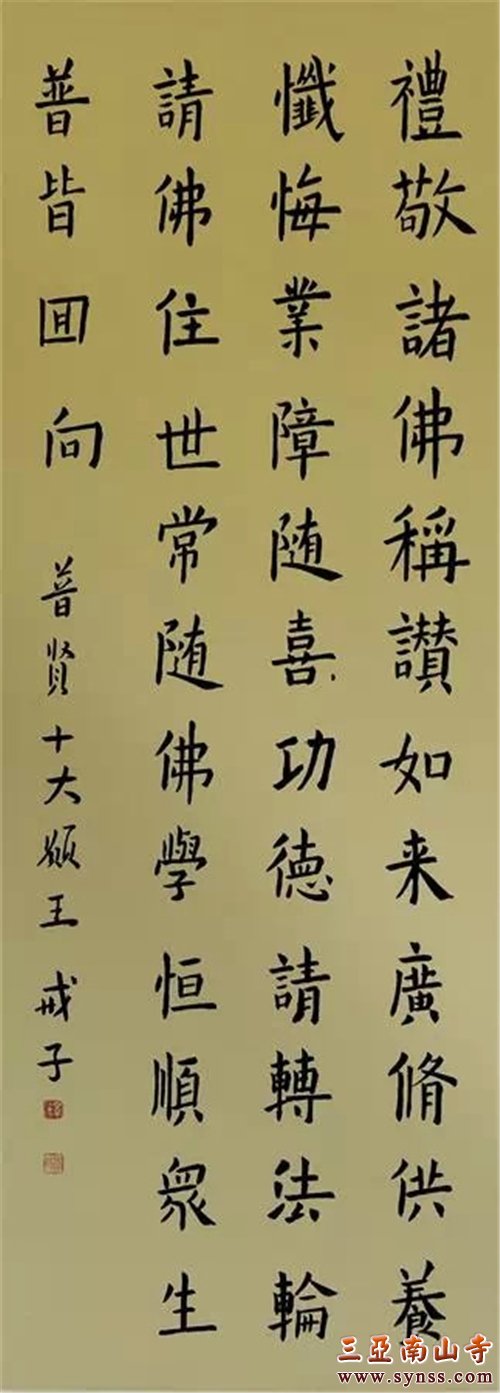 禮敬諸佛稱讃如来廣脩供養
懺悔業障随喜功德請轉法輪
請佛住世常随佛學恒順眾生
普皆囬向
普贤十大願王 戒子
三亞南山寺
www.synss.com